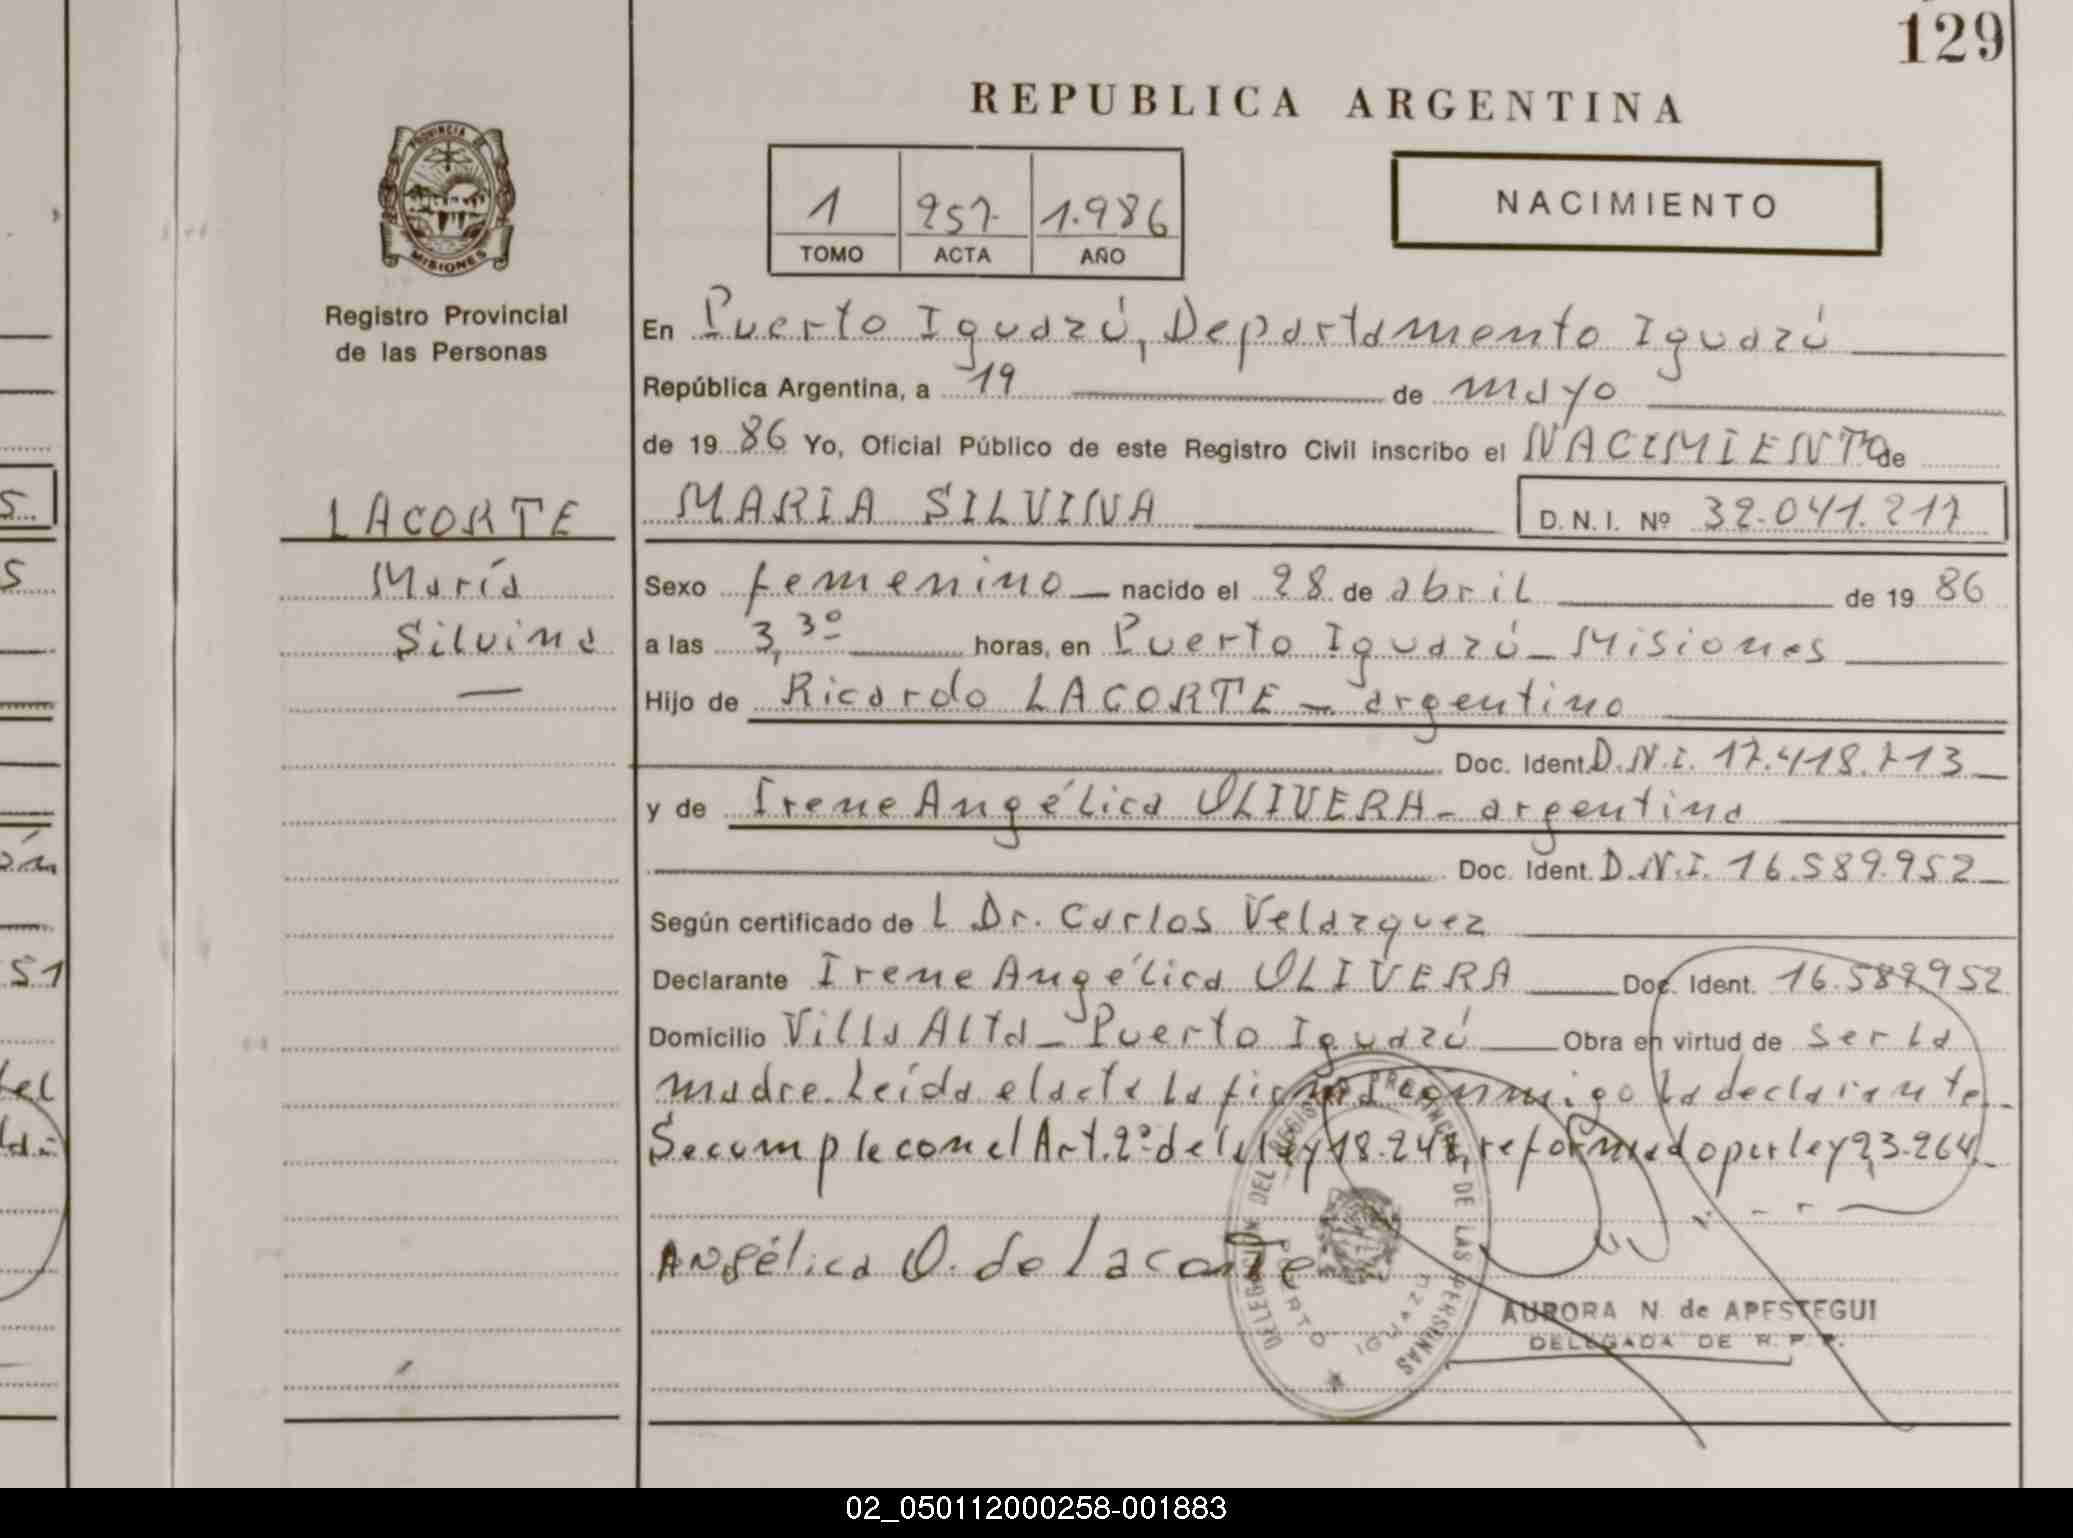 129
REPUBLICA ARGENTINA
PROVINCIA DE
MISIONES
Registro Provincial
de las Personas
1 257 1.986
TOMO ACTA AÑO
NACIMIENTO
En Puerto Iguazú, Departamento Iguazú
República Argentina, a 19 de mayo
de 19 86 Yo, Oficial Público de este Registro Civil inscribo el NACIMIENTO de
LACORTE
María
Silvina
MARIA SILVINA D.N.I. Nº 32.041.217
Sexo femenino nacido el 28 de abril de 19 86
a las 3,30 horas, en Puerto Iguazú - Misiones
Hijo de Ricardo LACORTE - argentino
Doc. Ident. D.N.I. 17.418.713
y de Irene Angélica OLIVERA - argentina
Doc. Ident. D.N.I. 16.589.952
Según certificado de L Dr. Carlos Velazquez
Declarante Irene Angélica OLIVERA Doc. Ident. 16.589.952
Domicilio Villa Alta - Puerto Iguazú Obra en virtud de ser la
madre. Leída el acta la firma conmigo la declarante.
Se cumple con el Art. 2º de la ley 18.248, reformado por ley 23.264.
Angélica O. de Lacorte
DELEGACION DEL REGISTRO PROVINCIAL DE LAS PERSONAS
PUERTO IGUAZU
AURORA N. de APESTEGUI
DELEGADA DE R. P. P.
02_050112000258-001883